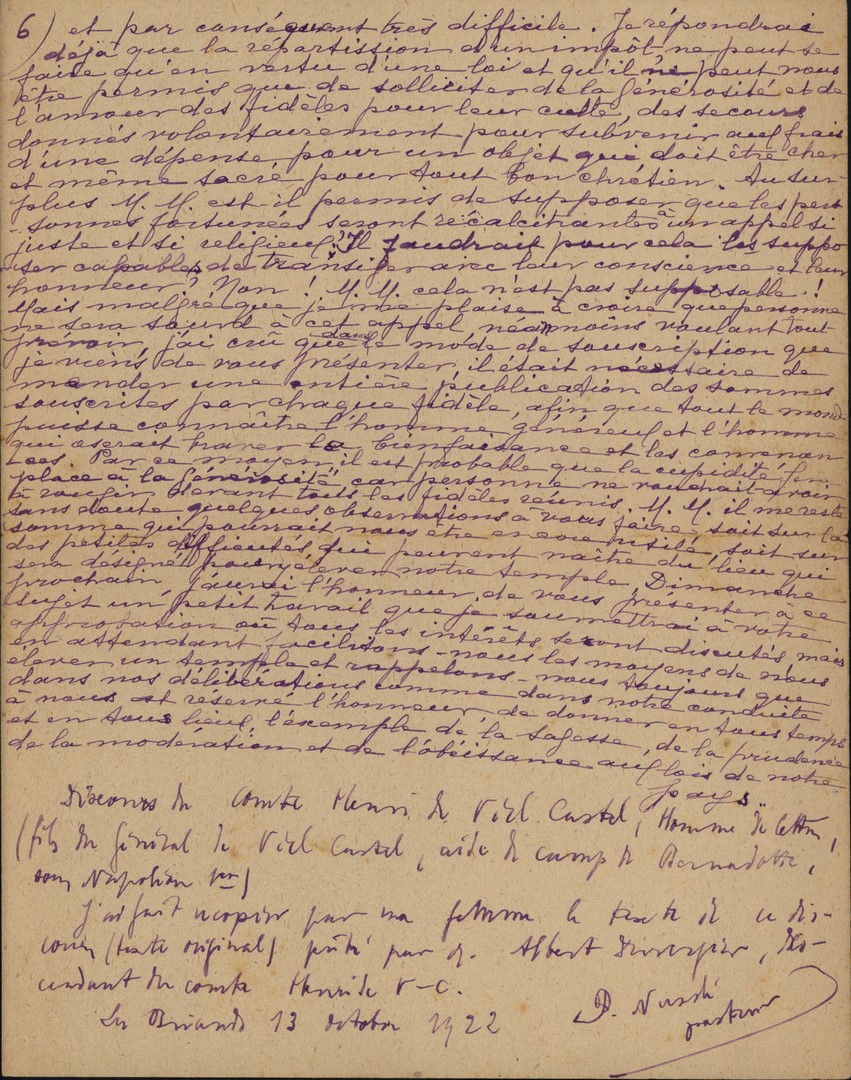 6) et par conséquent très difficile. Je répondrai
déjà que la répartission d'un impôt ne peut se
faire qu'en vertu d'une loi et qu'il ne peut nous
être permis que de solliciter de la générosité et de
l'amour des fidèles pour leur culte, des secours
donnés volontairement pour subvenir aux frais
d'une dépense, pour un objet qui doit être cher
et même sacré pour tout bon chrétien. Au sur-
plus M. M. est-il permis de supposer que les per
-sonnes fortunées seront récalcitrantes à un appel si
juste et si religieux? Il faudrait pour cela les suppo
-ser capables de transiger avec leur conscience et leur
honneur? Non! M. M. cela n'est pas supposable!
Mais malgré que je me plaise à croire que personne
ne sera sourd à cet appel, néanmoins voulant tout
prévoir, j'ai crû que dans le mode de souscription que
je viens de vous présenter, il était nécessaire de
mander une entière publication des sommes
souscrites par chaque fidèle, afin que tout le mond
puisse connaître l'homme généreux et l'homme
qui oserait braver la bienfaisance et les convenan
-ces. Par ce moyen il est probable que la cupidité fera
place à la générosité car personne ne voudrait avoir
à rougir devant tous les fidèles réunis. M. M. il me reste
sans doute quelques observations à vous faire, soit sur la
somme qui pourrait nous être encore utile, soit sur
des petites difficultés qui peuvent naître du lieu qui
sera désigné pour élever notre temple. Dimanche
prochain j'aurai l'honneur de vous présenter à ce
sujet un petit travail que je soumettrai à votre
approbation où tous les intérêts seront discutés mais
en attendant facilitons-nous les moyens de nous
élever un temple et rappelons-nous toujours que
dans nos délibérations comme dans notre conduite
à nous est réservé l'honneur de donner en tous temps
et en tous lieux l'exemple de la sagesse, de la prudence
de la modération et de l'obéissance aux lois de notre
pays."
Discours du comte Henri de Viel Castel, homme de lettres,
(fils du général de Viel Castel, aide de camp de Bernadotte,
sous Napoléon 1er)
J'ai fait recopier par ma femme le texte de ce dis-
cours (texte original) prêté par M. Albert Duvergier, des-
cendant du comte Henri de V-C.
Les Briands 13 octobre 1922
pasteur